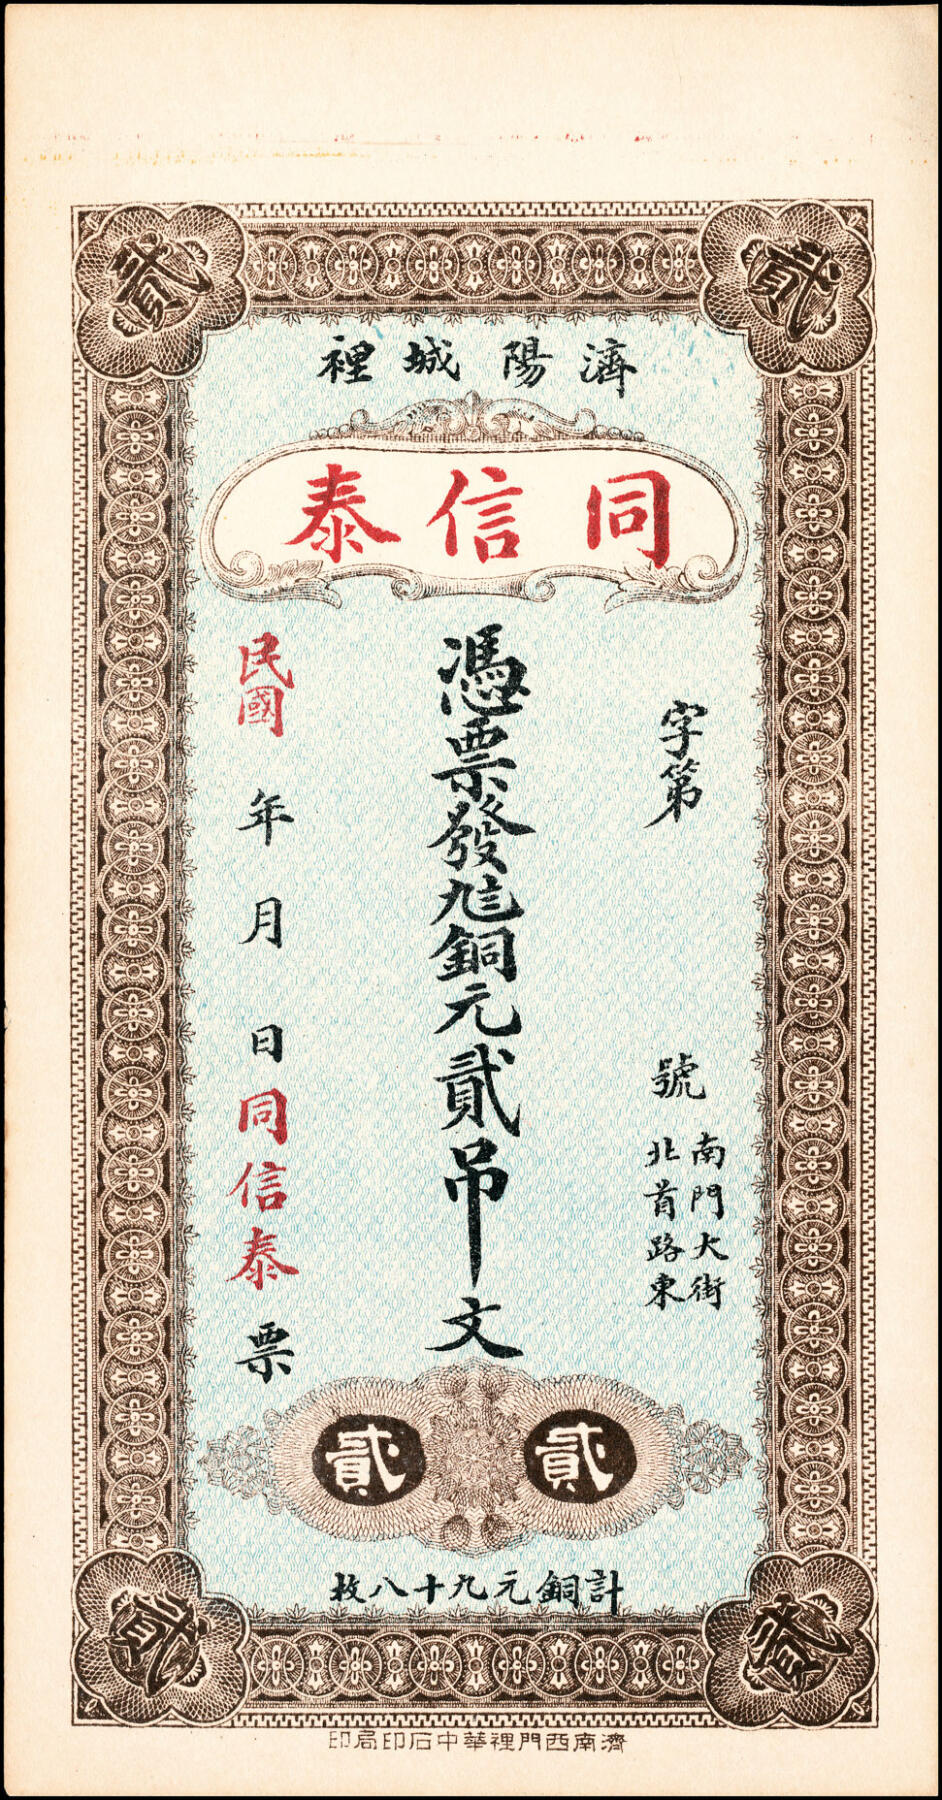 貳 貳
濟陽城裡
同信泰
字第 號
南門大街
北首路東
憑票發九〨銅元貳吊文
民國 年 月 日 同信泰票
貳 貳
計銅元九十八枚
貳 貳
濟南西門裡華中石印局印